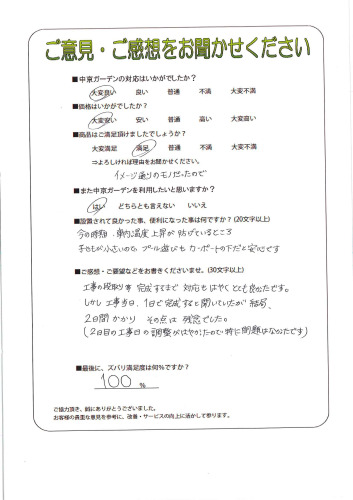 ご意見・ご感想をお聞かせください
■中京ガーデンの対応はいかがでしたか？
大変良い 良い 普通 不満 大変不満
■価格はいかがでしたか？
大変安い 安い 普通 高い 大変高い
■商品はご満足頂けましたでしょうか？
大変満足 満足 普通 不満 大変不満
⇒よろしければ理由をお聞かせください。
イメージ通りのモノだったので
■また中京ガーデンを利用したいと思いますか？
はい どちらとも言えない いいえ
■設置されて良かった事、便利になった事は何ですか？(20文字以上)
今の時期、車内温度上昇が防げているところ
子どもが小さいので、プール遊びも カーポートの下だと安心です
■ご感想・ご要望などをお書きくださいませ。(30文字以上)
工事の段取り等 完成するまで 対応もはやく とても良かったです。
しかし 工事当日、1日で完成すると聞いていたが 結局、
2日間かかり その点は 残念でした。
(2日目の工事日の調整がはやかったので特に問題はなかったです)
■最後に、ズバリ満足度は何%ですか？
100 %
ご協力頂き、誠にありがとうございました。
お客様の貴重な意見を参考に、改善・サービスの向上に活かして参ります。